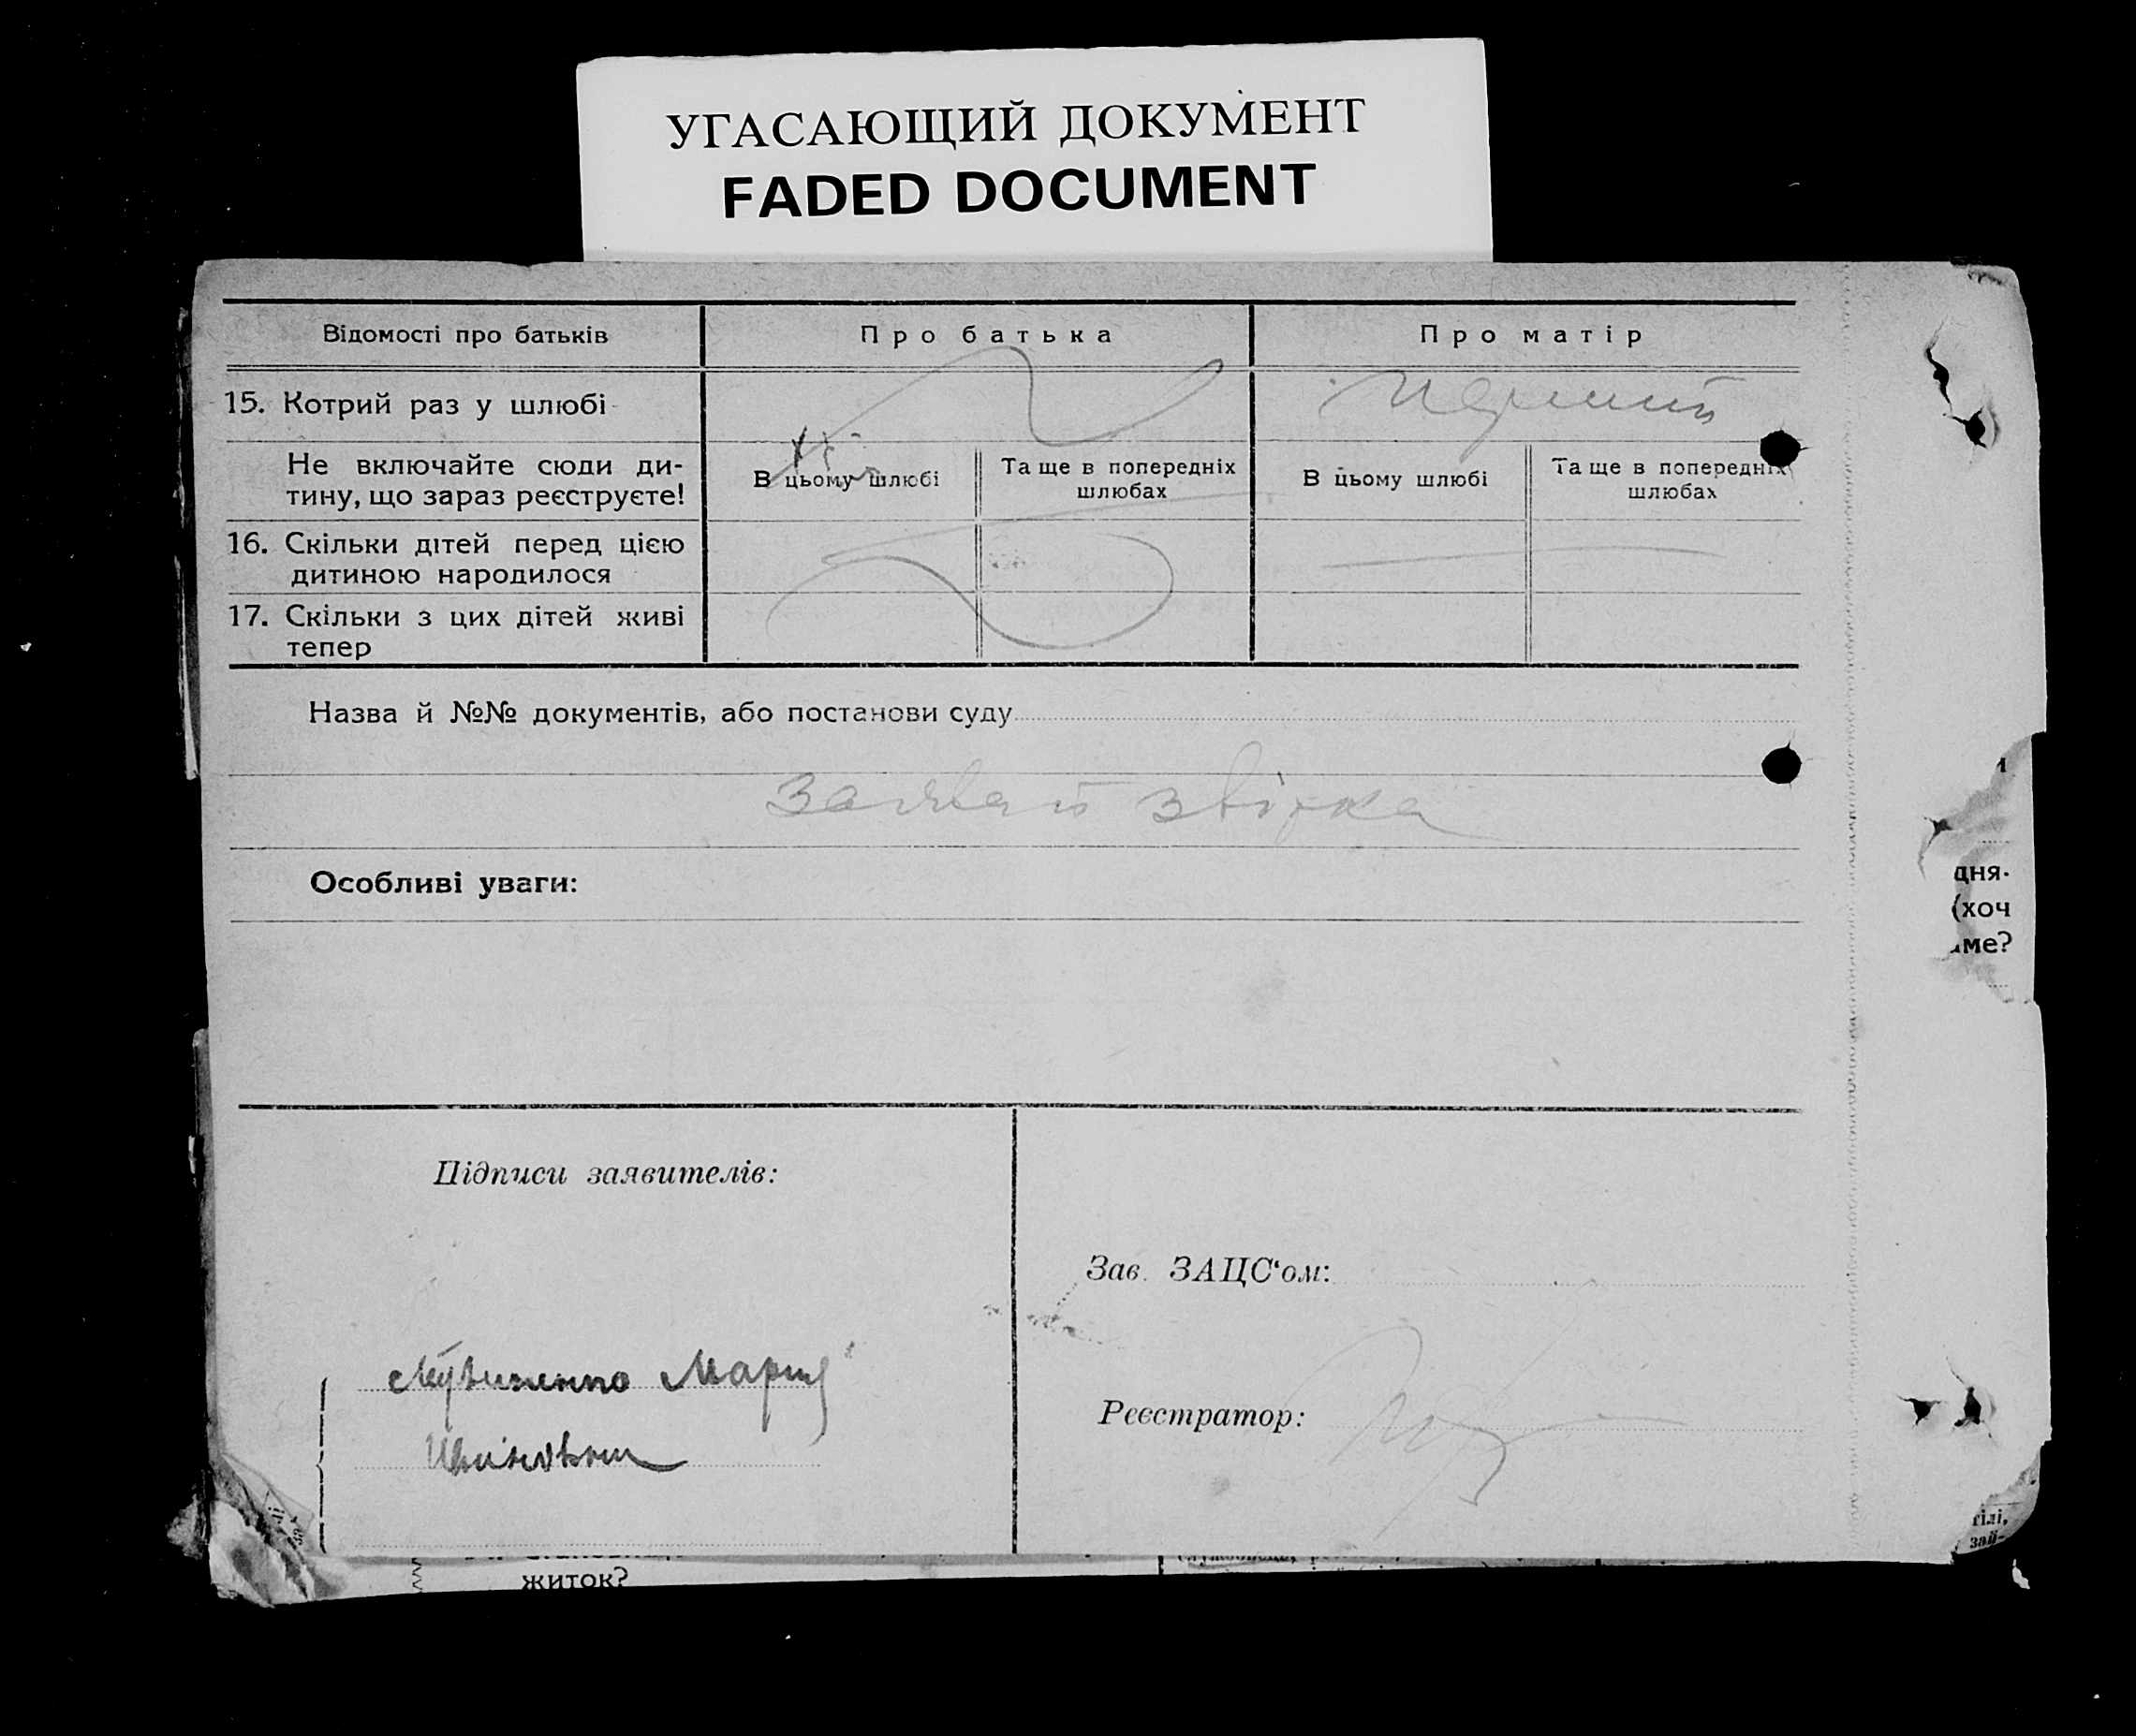 УГАСАЮЩИЙ ДОКУМЕНТ
FADED DOCUMENT
Відомості про батьків
Про батька
Про матір
15. Котрий раз у шлюбі
перший
Не включайте сюди ди-
тину, що зараз реєструєте!
В цьому шлюбі
Та ще в попередніх
шлюбах
В цьому шлюбі
Та ще в попередніх
шлюбах
16. Скільки дітей перед цією
дитиною народилося
17. Скільки з цих дітей живі
тепер
Назва й №№ документів, або постанови суду
Особливі уваги:
дня.
(хоч
ме?
Підписи заявителів:
Зав. ЗАЦС‘ом:
Мария
Реєстратор:
тілі,
зай-
житок?